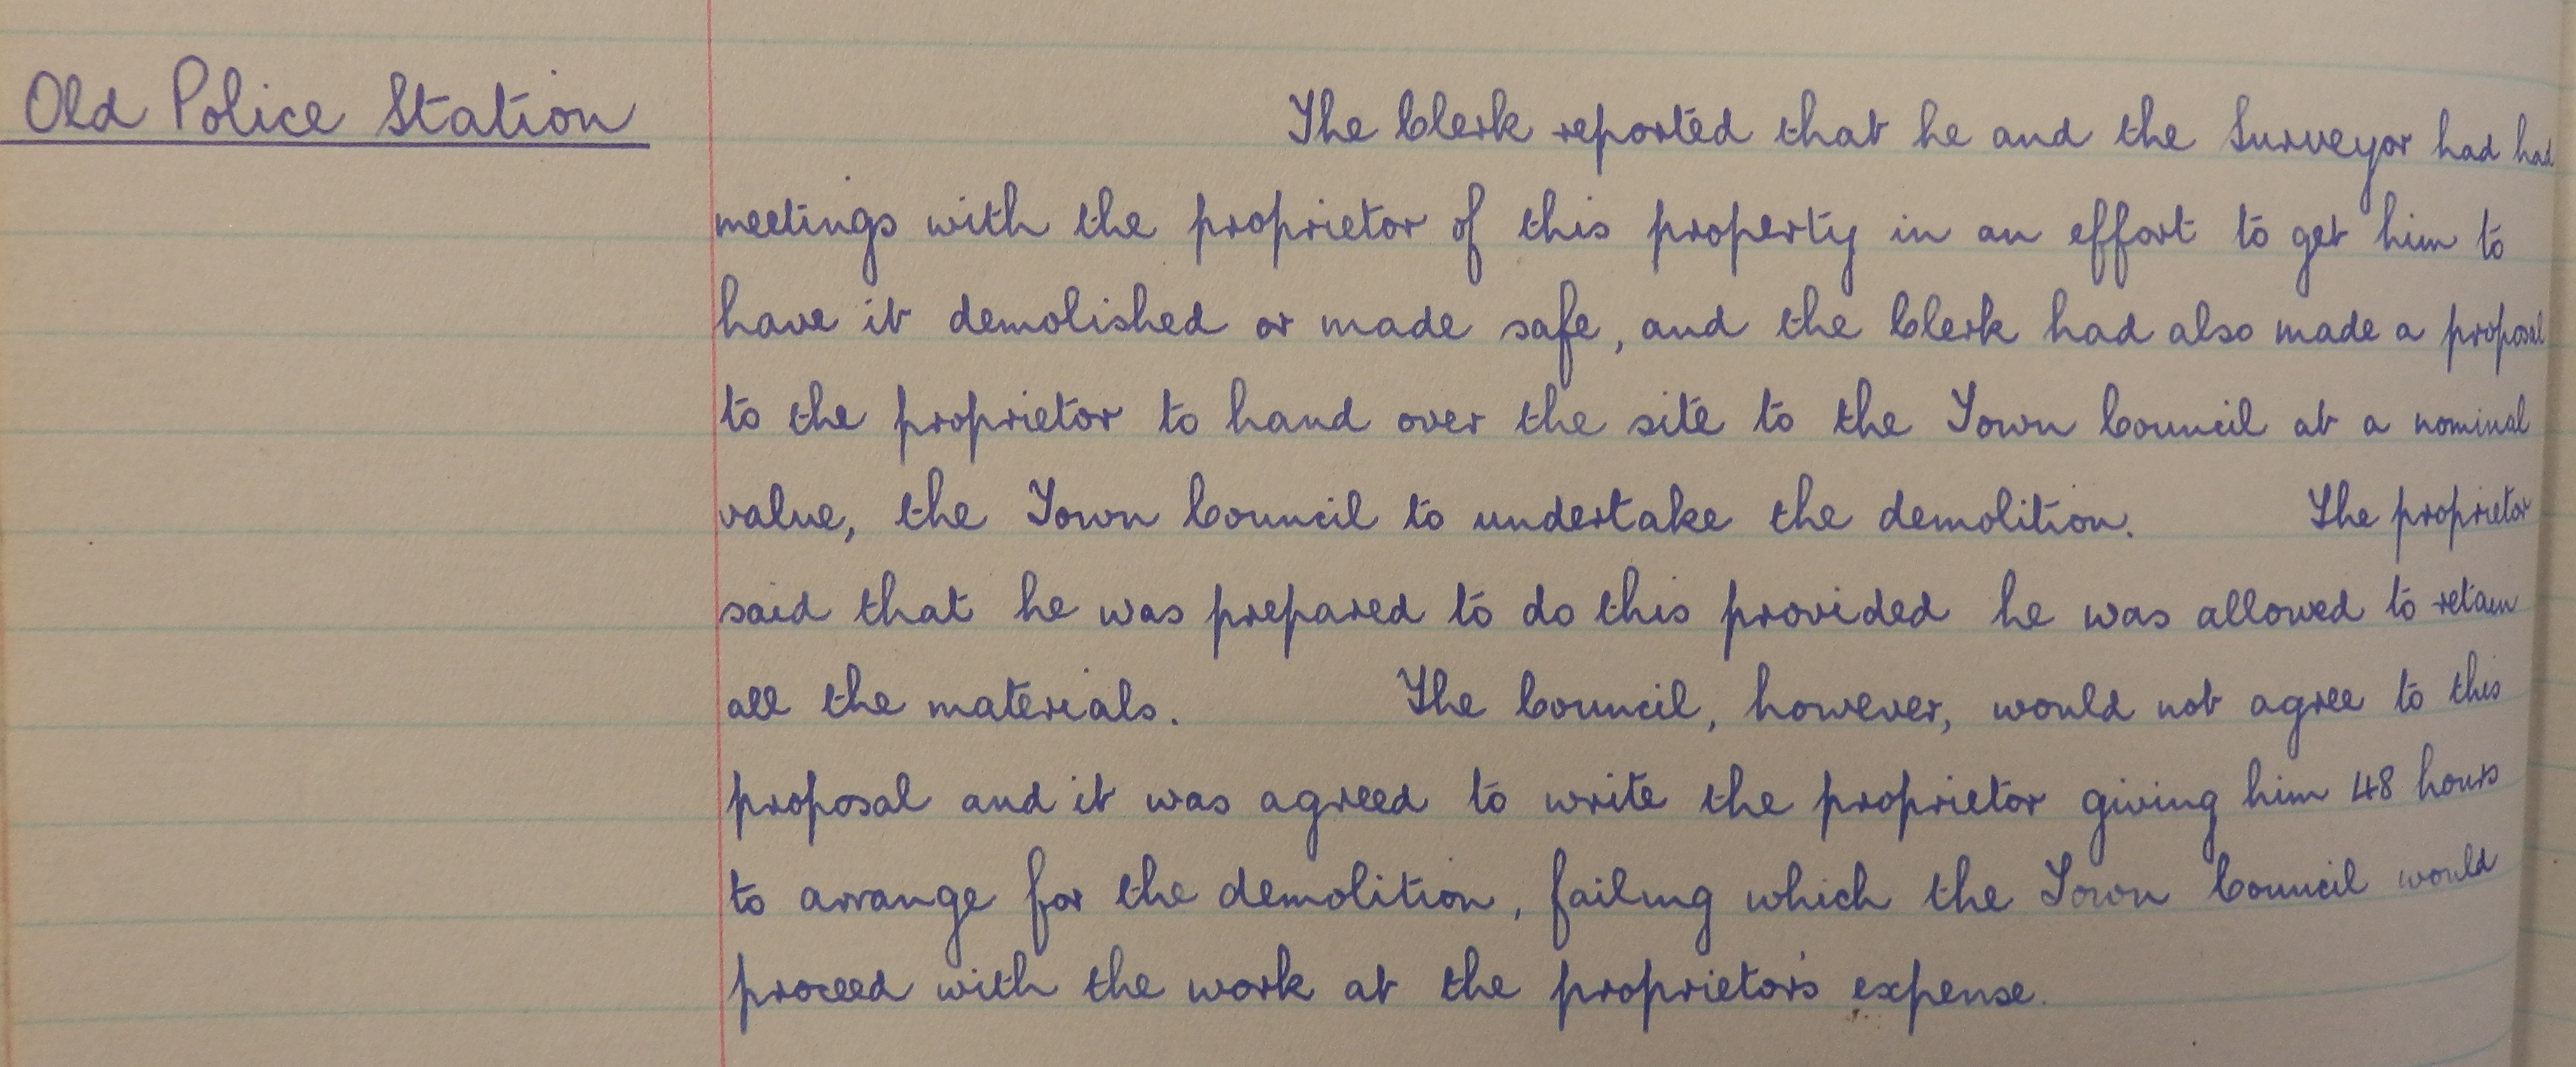 Old Police Station
The Clerk reported that he and the Surveyor had had
meetings with the proprietor of this property in an effort to get him to
have it demolished or made safe, and the Clerk had also made a proposal
to the proprietor to hand over the site to the Town Council at a nominal
value, the Town Council to undertake the demolition. The proprietor
said that he was prepared to do this provided he was allowed to retain
all the materials. The Council, however, would not agree to this
proposal and it was agreed to write the proprietor giving him 48 hours
to arrange for the demolition, failing which the Town Council would
proceed with the work at the proprietor's expense.